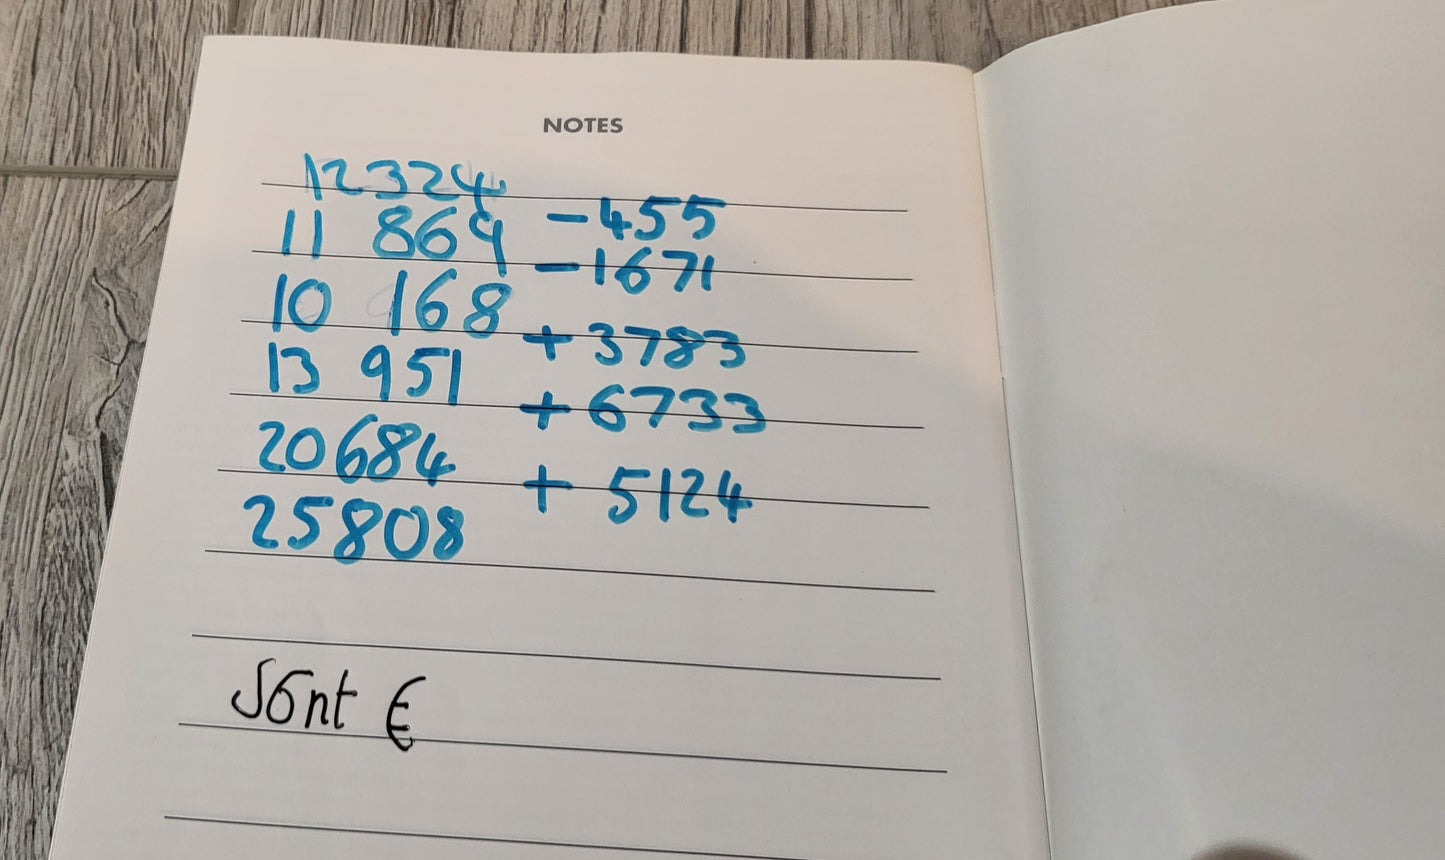 NOTES
12324
-455
11 869
-1671
10 168
+ 3783
13 951
+ 6733
20684
+ 5124
25808
Sont €